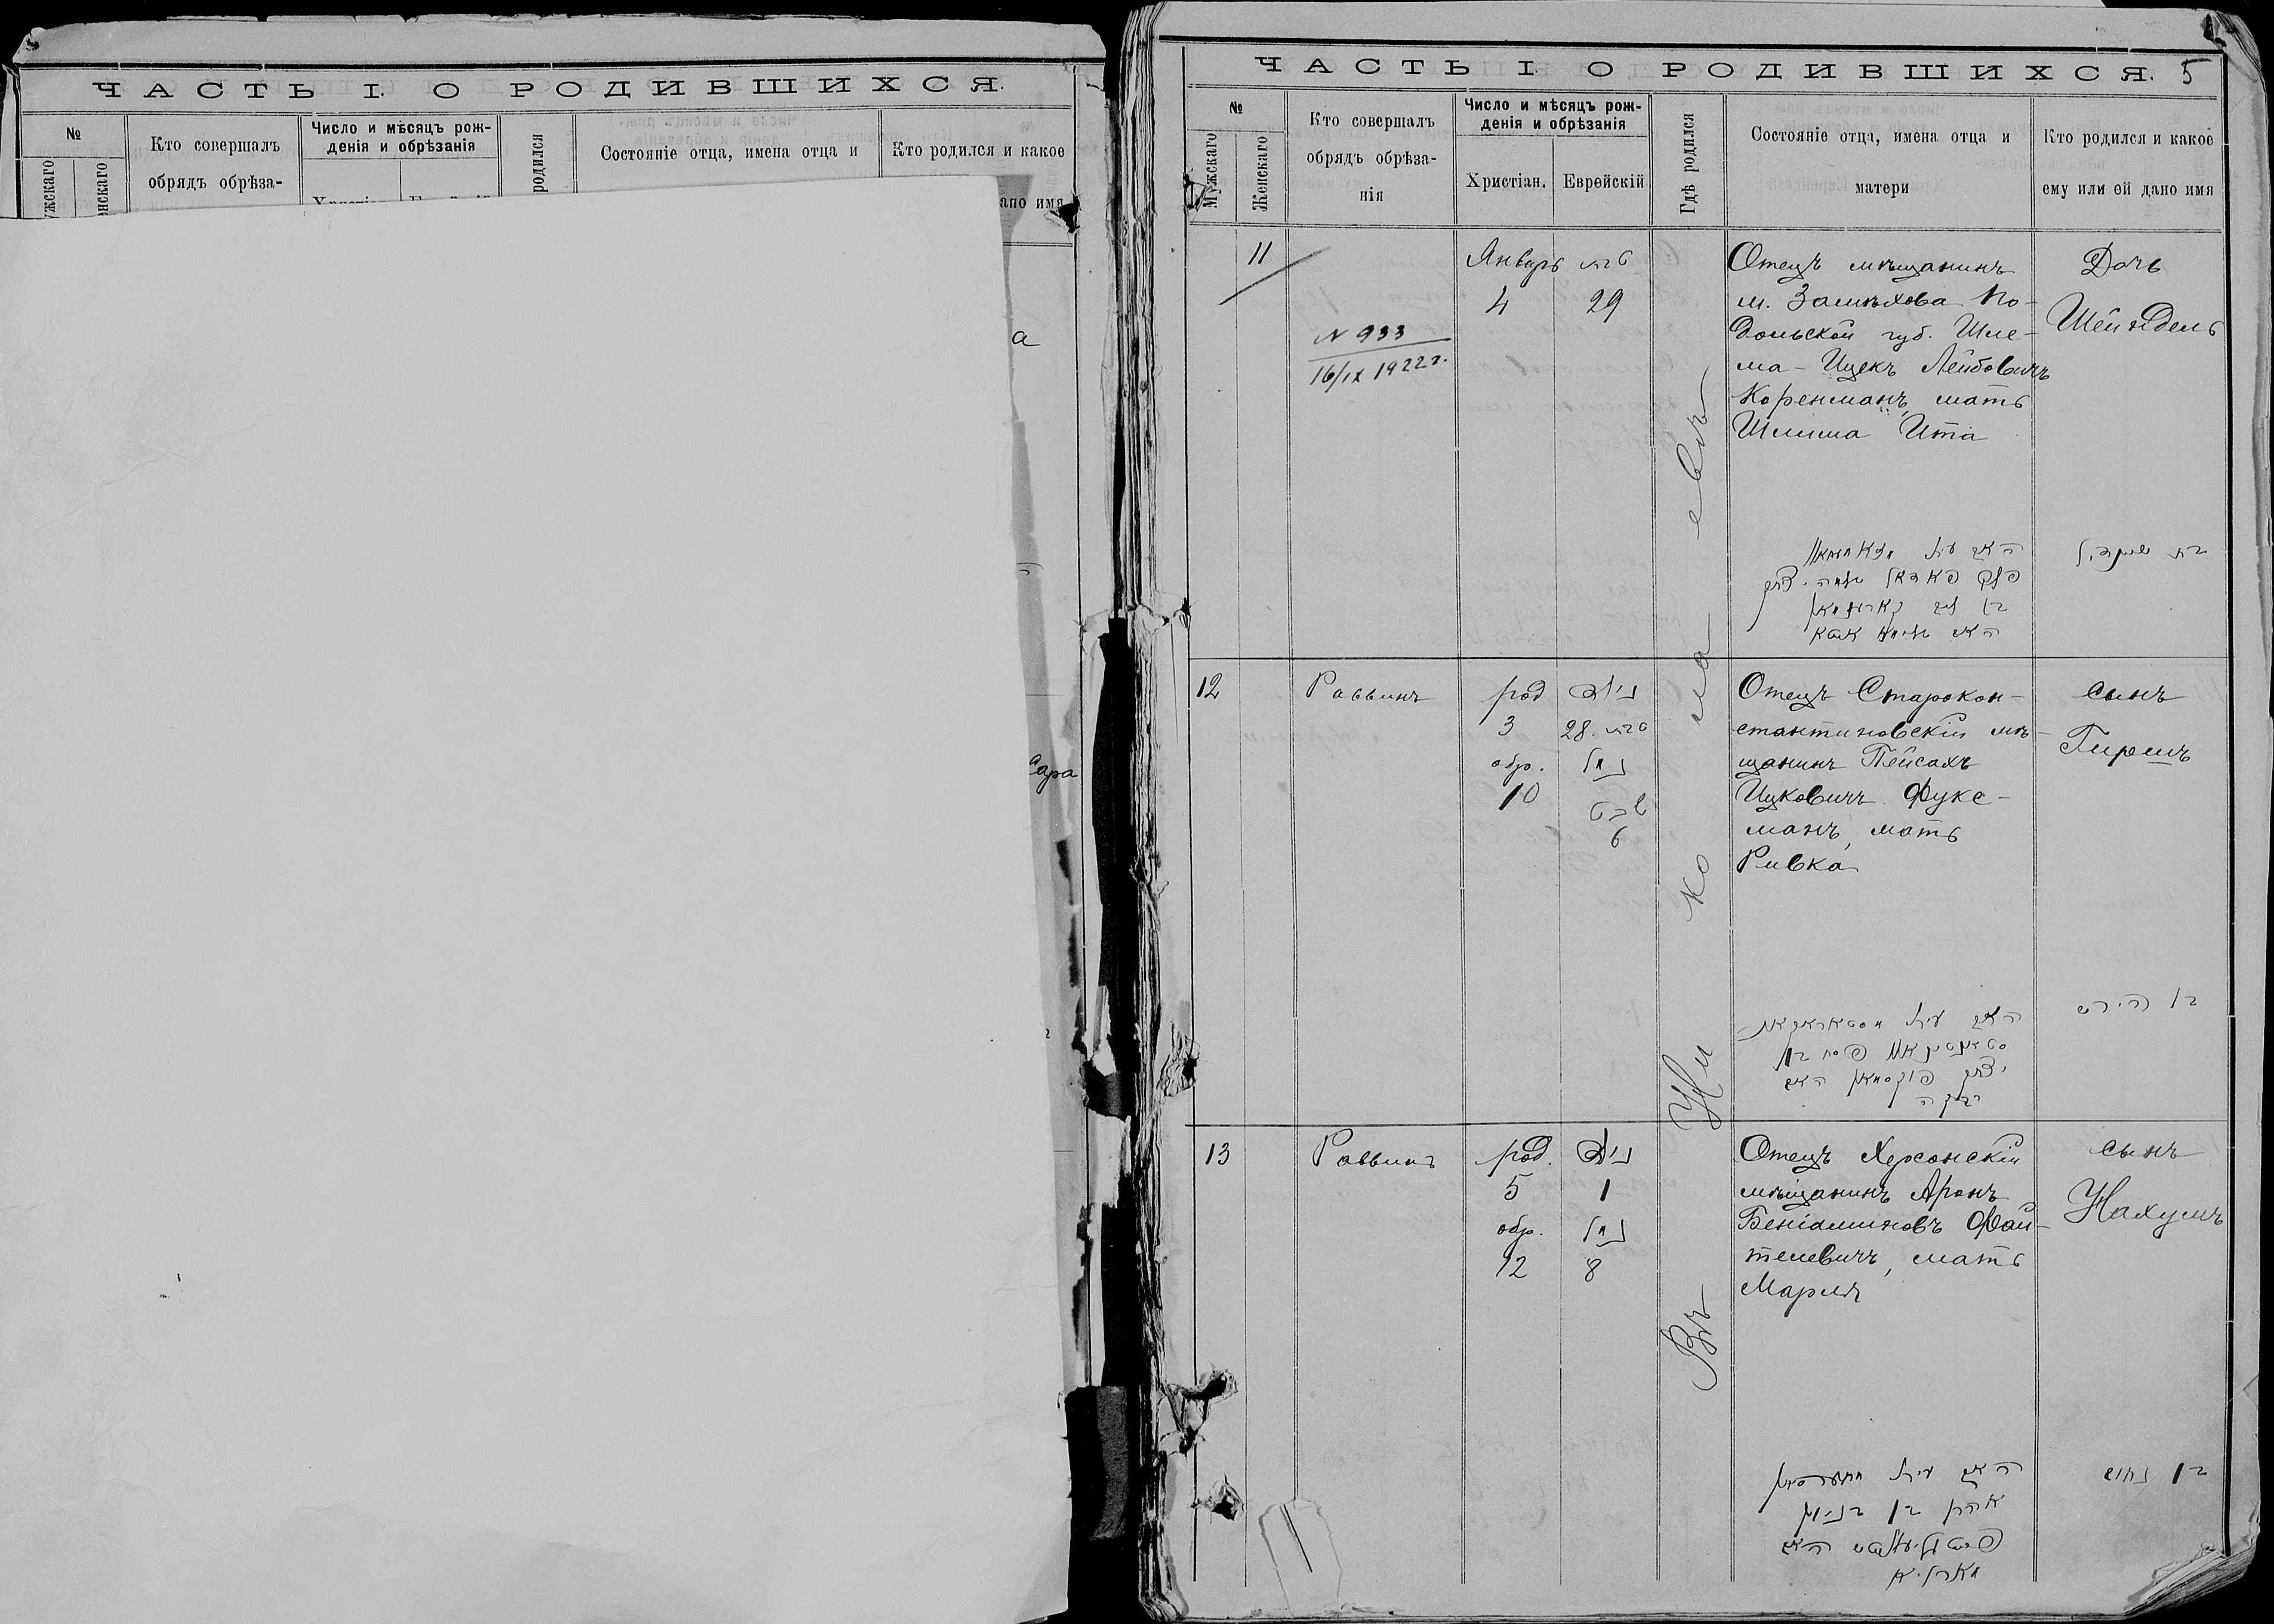 ЧАСТЬ I. О РОДИВШИХСЯ.
№
Кто совершалъ
обрядъ обрѣза-
Число и мѣсяцъ рож-
денія и обрѣзанія
родился
Состояніе отца, имена отца и
Кто родился и какое
ано имя
а
Сара
ЧАСТЬ I. О РОДИВШИХСЯ. 5
№
Мужскаго
Женскаго
Кто совершалъ
обрядъ обрѣза-
нія
Число и мѣсяцъ рож-
денія и обрѣзанія
Христіан.
Еврейскій
Гдѣ родился
Состояніе отца, имена отца и
матери
Кто родился и какое
ему или ей дано имя
Въ Николаевѣ
11
N 933
16/IX 1922 г.
Январь
4
טבת
29
Отецъ мѣщанинъ
м. Замѣхова По-
дольской губ. Шле-
ма-Ицекъ Лейбовичъ
Коренманъ, мать
Шлима Ита
Дочь
Шейндель
12
Раввинъ
род
3
обр.
10
נולד
28 טבת
נמול
שבט
6
Отецъ Старокон-
стантиновскій мѣ-
щанинъ Пейсахъ
Ицковичъ Фукс-
манъ, мать
Ривка
сынъ
Гиршъ
בן הירש
13
Раввинъ
род.
5
обр.
12
נולד
1
נמול
8
Отецъ Херсонскій
мѣщанинъ Аронъ
Беніаминовъ Фай-
телевичъ, мать
Марія
сынъ
Нахумъ
בן נחום